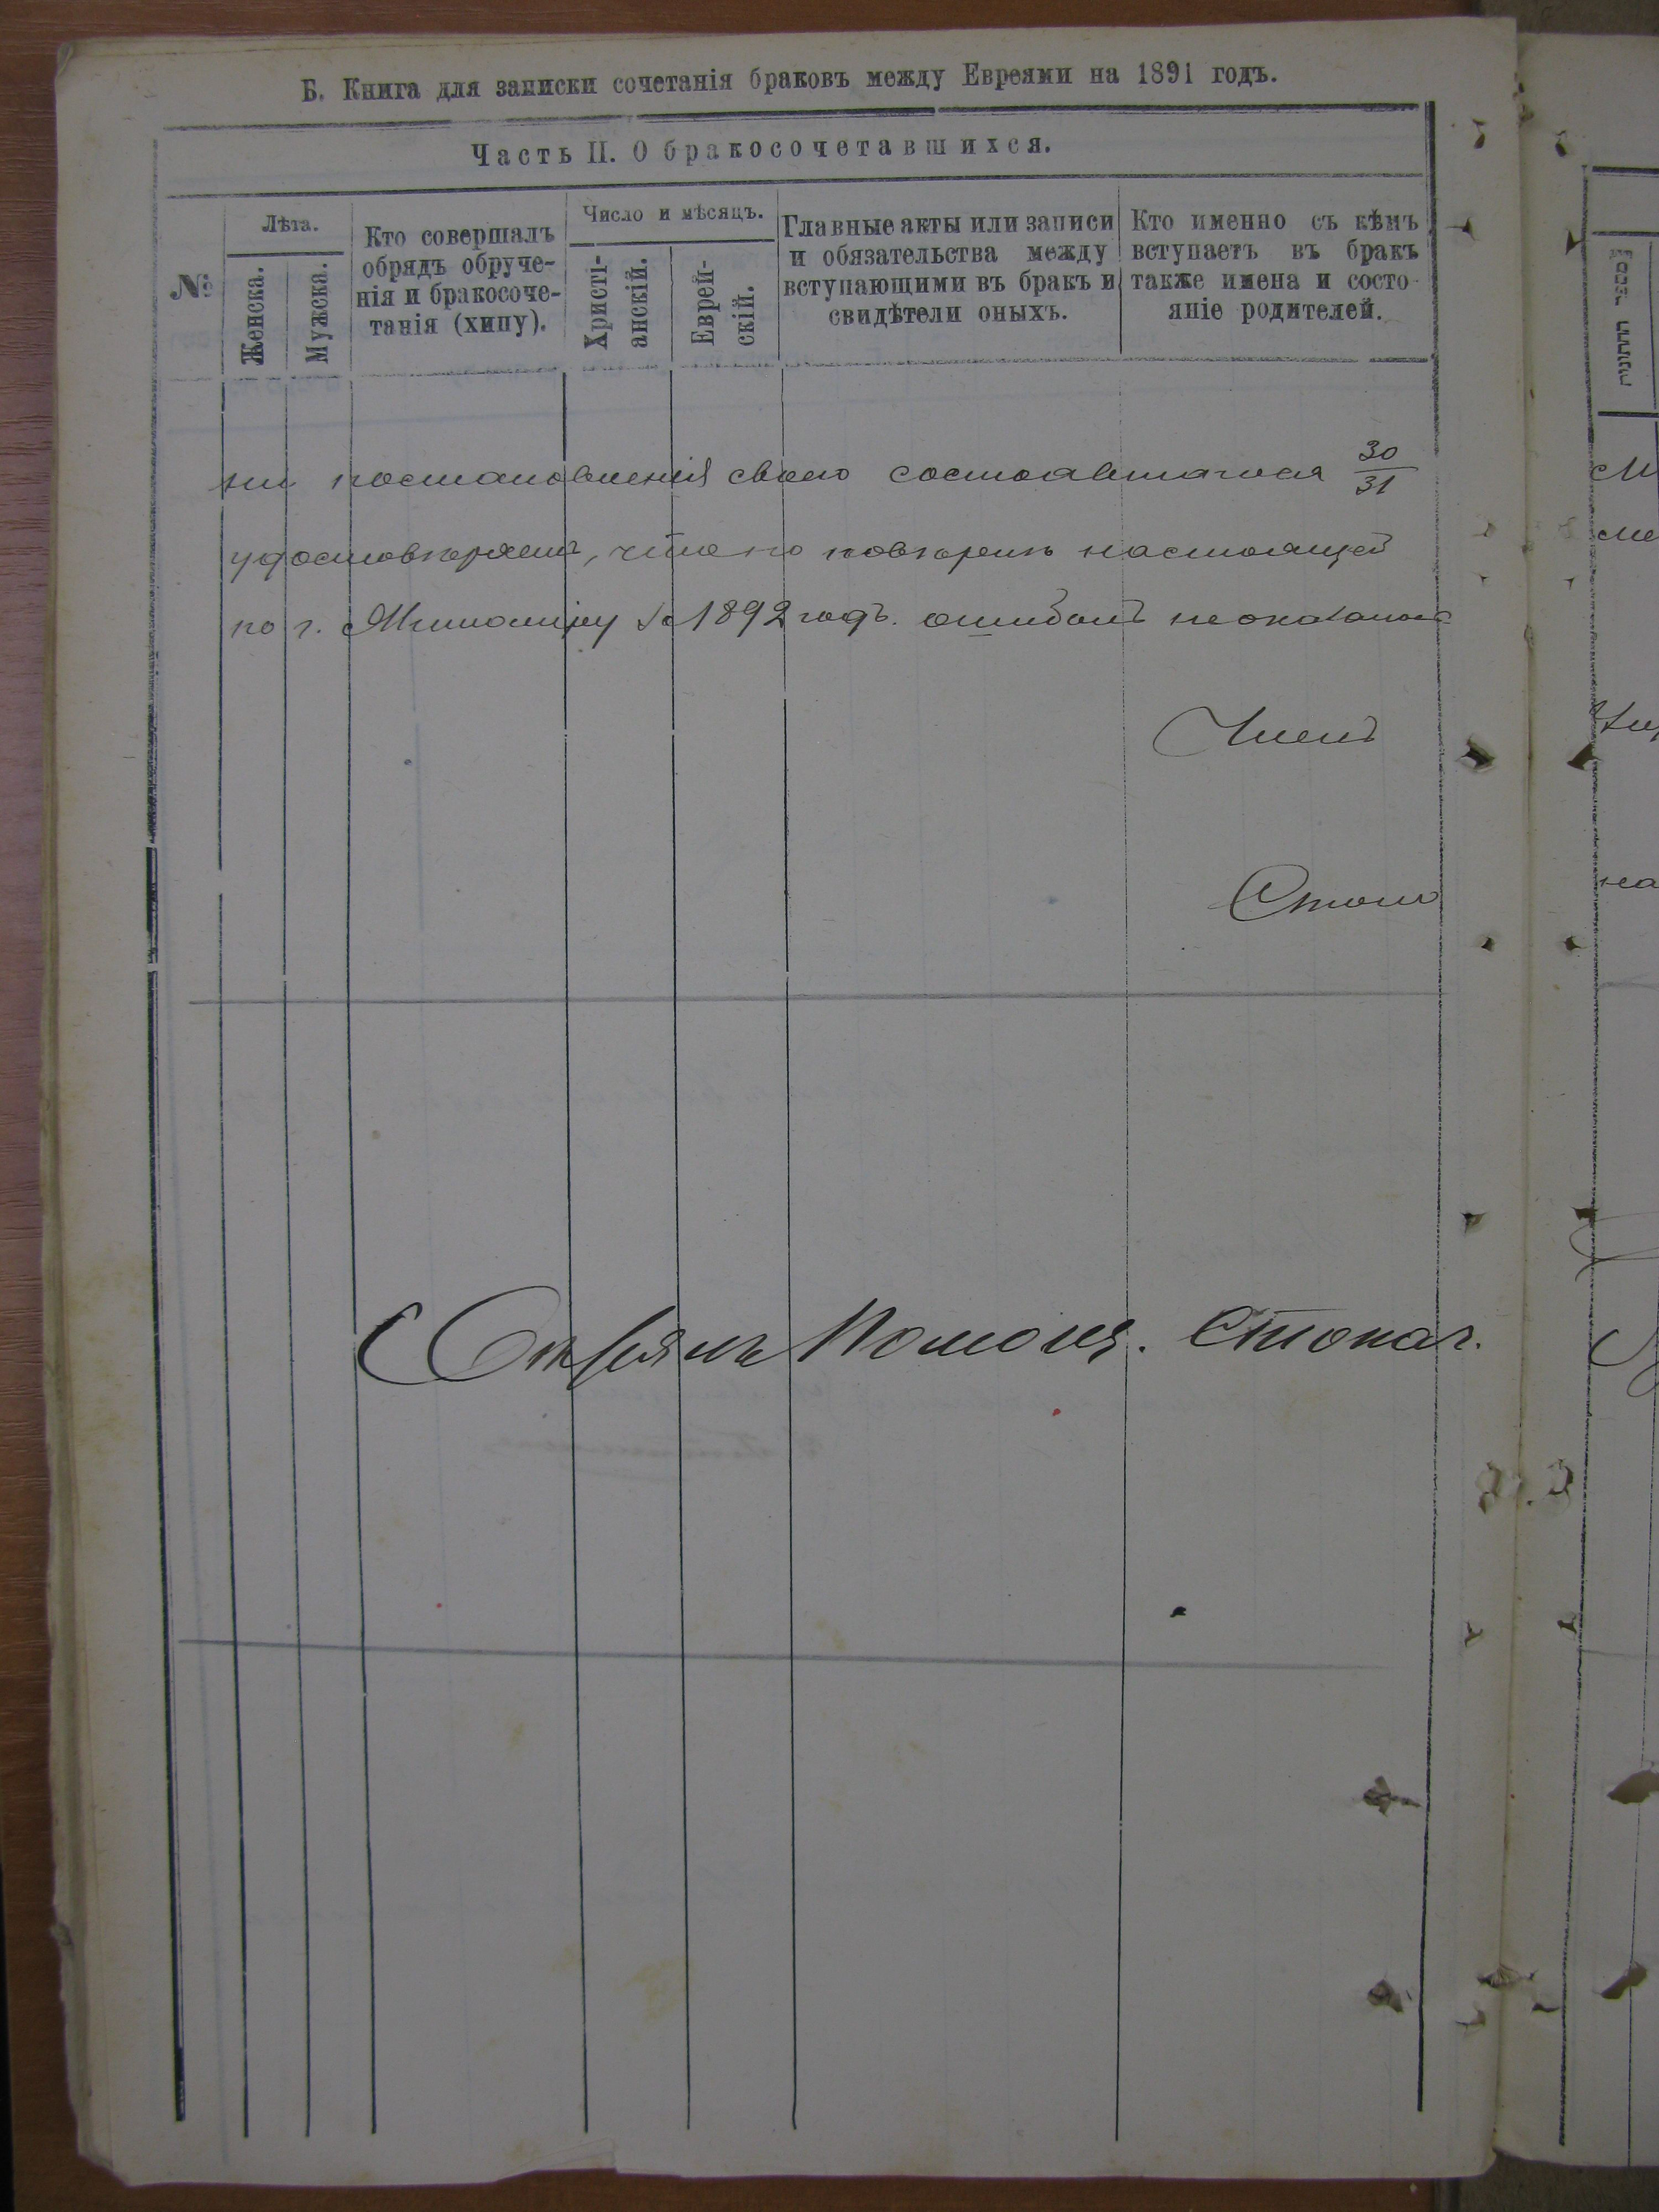 Б. Книга для записки сочетанія браковъ между Евреями на 1891 годъ.
Часть II. О бракосочетавшихся.
№
Лѣта.
Женска.
Мужска.
Кто совершалъ
обрядъ обруче-
нія и бракосоче-
танія (хипу).
Число и мѣсяцъ.
Христі-
анскій.
Еврей-
скій.
Главные акты или записи
и обязательства между
вступающими въ бракъ и
свидѣтели оныхъ.
Кто именно съ кѣмъ
вступаетъ въ бракъ
также имена и состо
яніе родителей.
ספר החתונה
постановленія своего состоявшагося 30/31
удостовѣряетъ, что по повѣркѣ настоящей
по г. Житоміру за 1892 годъ. ошибокъ не оказалось
Членъ
Столо
Скрѣпилъ Помощ. Столонач.
на